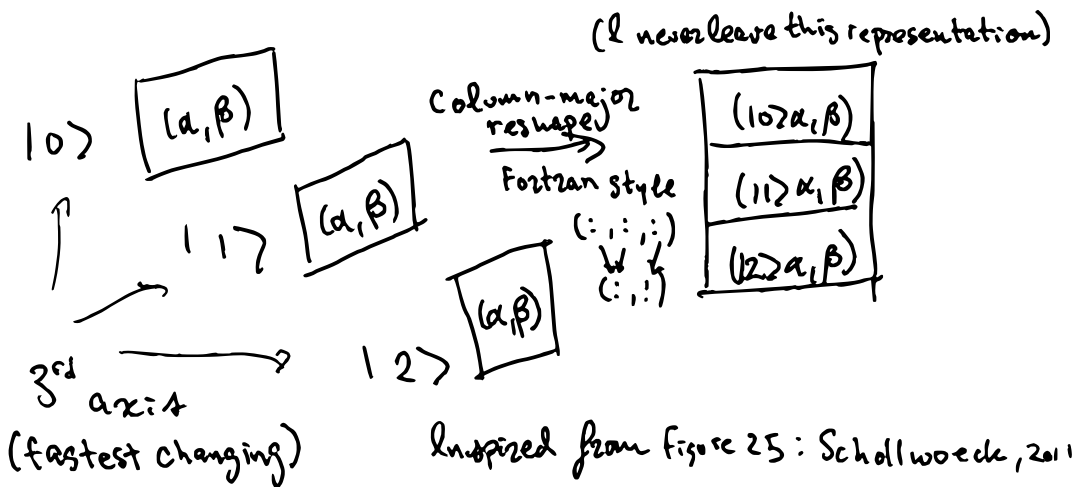 (I never leave this representation)
|0> (α, β)
|1> (α, β)
|2> (α, β)
3rd axis
(fastest changing)
Column-major
reshape
Fortran style
(:,:,:)
(:,:)
(|0>α, β)
(|1>α, β)
(|2>α, β)
Inspired from Figure 25: Schollwoeck, 2011